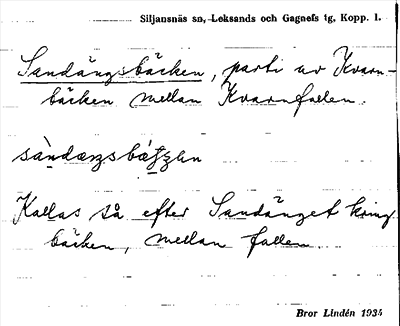 Siljansnäs sn, Leksands och Gagnefs tg, Kopp. l.
Sandängsbäcken, parti av Kvarn-
bäcken mellan Kvarnfallen.
Kallas så efter Sandänget kring
bäcken, mellan fallen.
Bror Lindén 1934